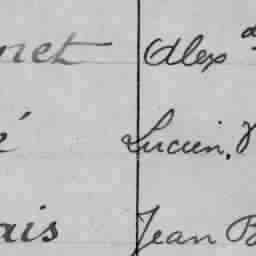 net Alex d
é Lucien, V
ais Jean B